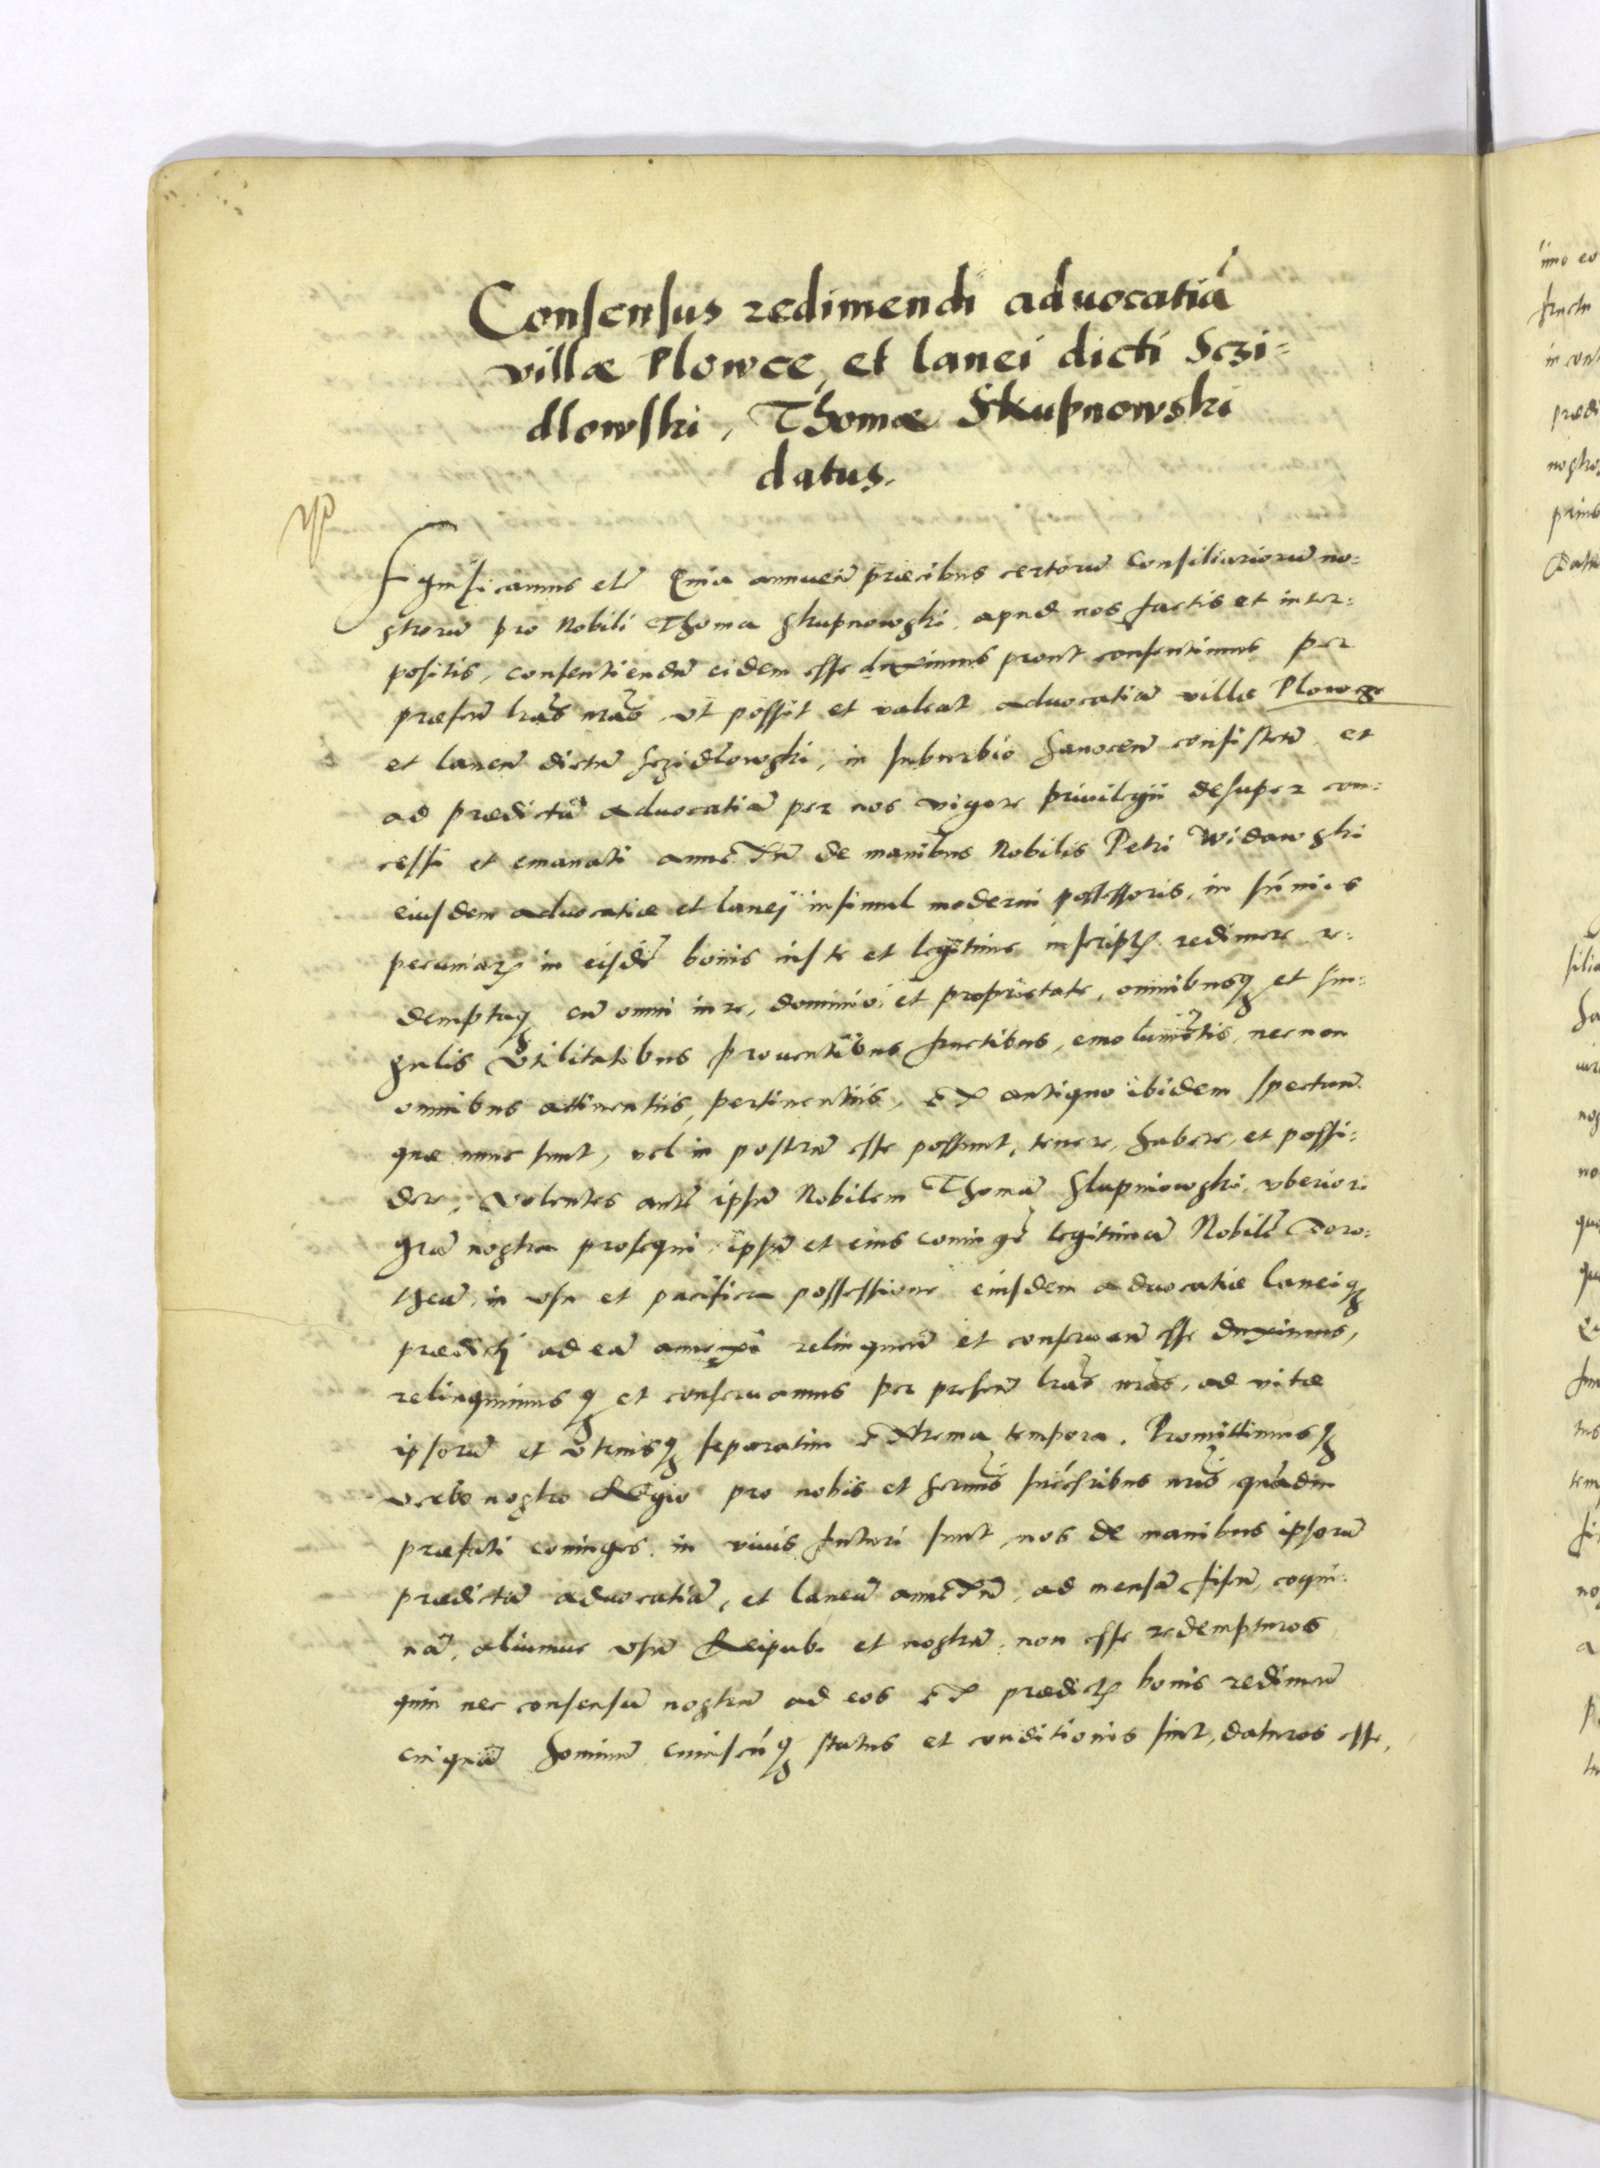 Consensus redimendi aduocatiã
villæ Plowce, et lanei dicti Sczi=
dlowski, Thomæ Skupnowski
datus.
Significamus etc̃ Quia annuen̄ præcibus certorū Consiliariorū no=
strorū pro Nobili Thoma Skupnowski apud nos factis et inter=
positis, consentiendū eidem esse duximus prout consentimus per
præsen̄ lr̃as nr̃as, vt possit et valeat aduocatiā villæ Plowcze
et laneū dictū Sczidlowski, in suburbio Sanocen̄ consisten̄ et
ad prædictā aduocatiā per nos vigore priuilegii desuper con=
cessi et emanati annexū de manibus Nobilis Petri Widawski
eiusdem aduocatiæ et lanej insimul moderni possessoris, in sum̃is
pecuniarꝝ in eisdē bonis iuste et legitime inscriptꝫ redimere re=
demptaqꝫ cū omni iure, dominio, et proprietate, omnibusqꝫ et sin=
gulis vtilitatibus prouentibus fructibus, emolumētis, necnon
omnibus attinentiis, pertinentiis, ex antiquo ibidem spectan̄
quæ nunc sunt, vel in posterū esse possunt, tenere, habere, et possi=
dere, Volentes autē ipsū Nobilem Thomā Skupniowski vberiori
gr̃a nostra prosequi, ipsū et eius coniugē legitimā Nobilē Doro=
theā, in vsu et pacifica possessione eiusdem aduocatiæ laneiqꝫ
prædicti ad eā annexi relinquen̄ et conseruan̄ esse duximus,
relinquimusqꝫ et conseruamus per presen̄ lr̃as nr̃as, ad vitæ
ipsorū et vtriusqꝫ separatim extrema tempora. Promittimusqꝫ
verbo nostro Regio pro nobis et Sermis succ̃soribus nr̃is, quādiu
præfati coniuges in viuis futuri sunt, nos de manibus ipsorū
prædictā aduocatiā, et laneū annexū, ad mensā, fiscū, coqui=
nā, aliumue vsū Reipub. et nostrū, non esse redempturos
quin nec consensū nostrū ad eos ex prædictꝫ bonis redimen̄
cuiquā hominū cuiuscūqꝫ status et conditionis sint, daturos esse,